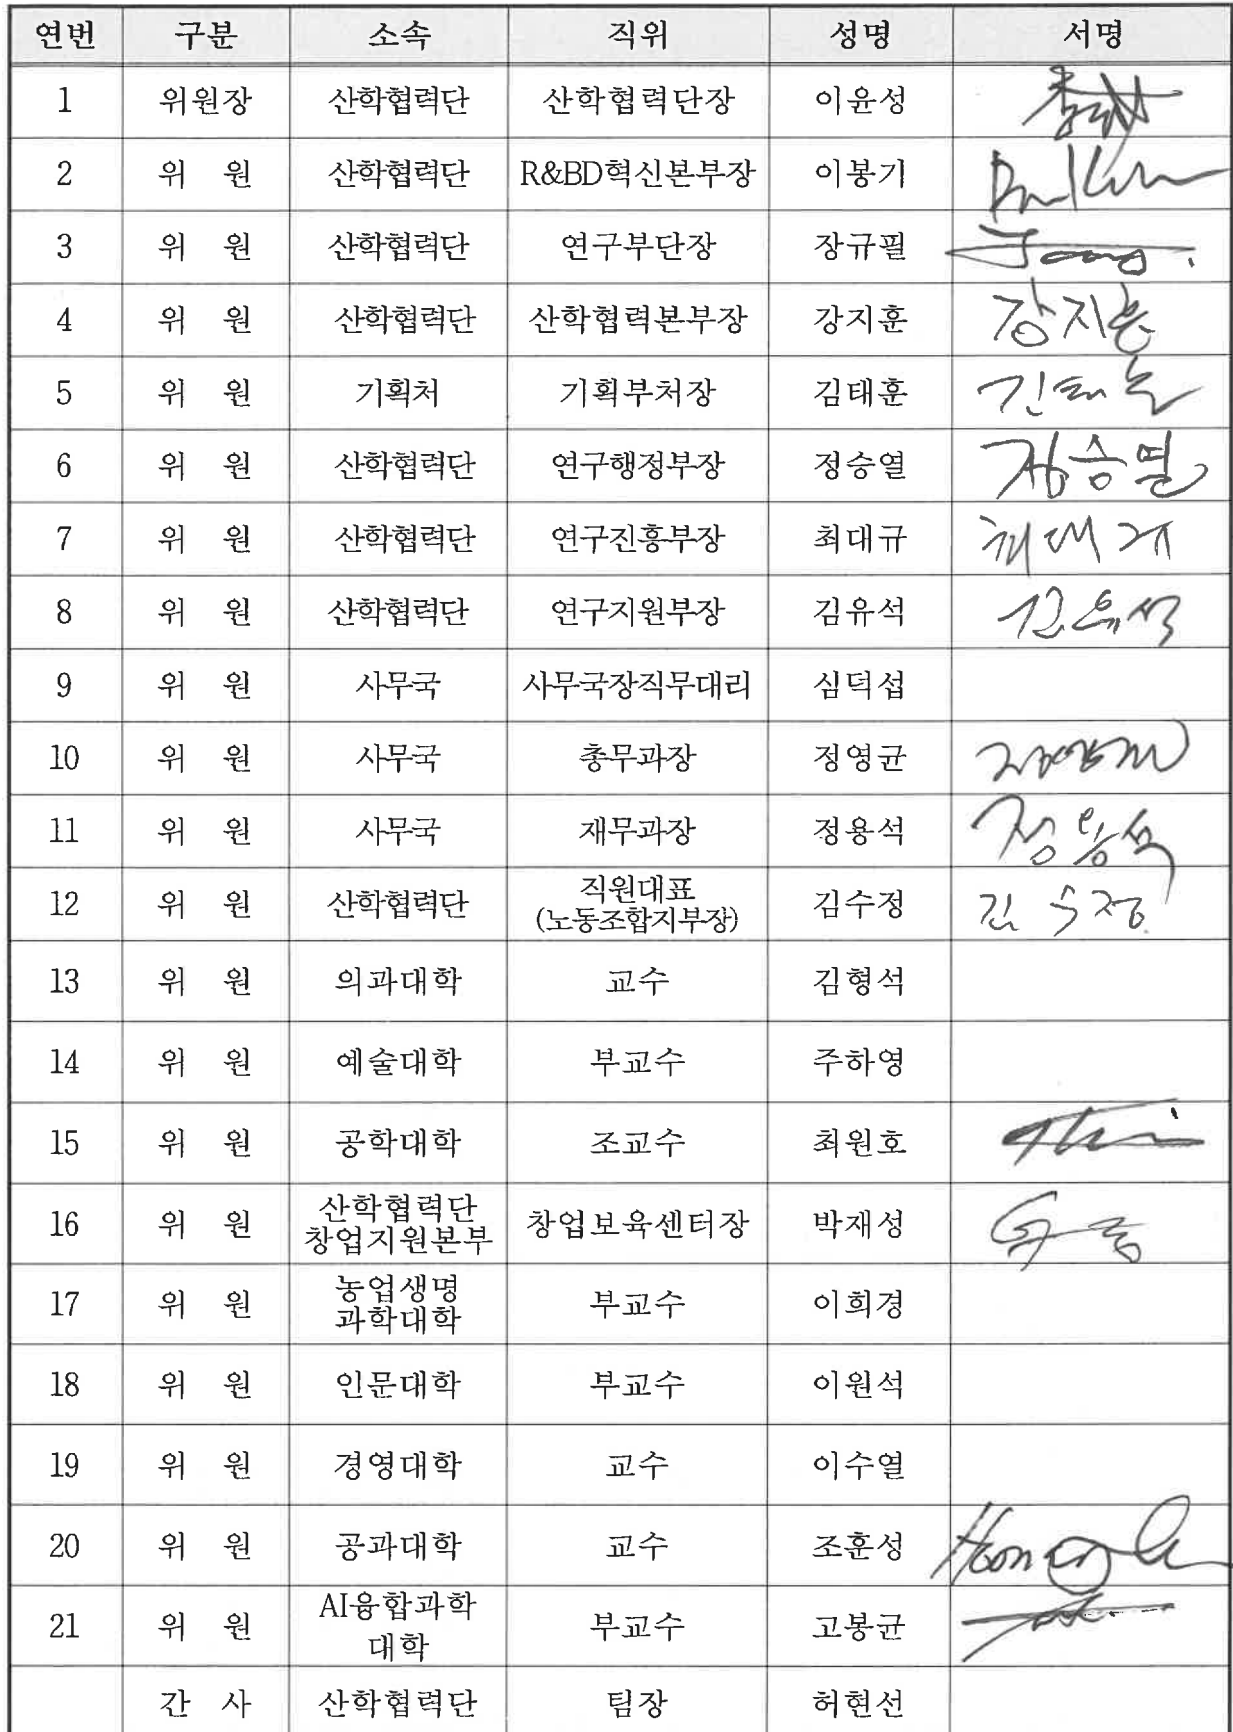 연번 구분 소속 직위 성명 서명
1 위원장 산학협력단 산학협력단장 이윤성
2 위 원 산학협력단 R&BD혁신본부장 이봉기
3 위 원 산학협력단 연구부단장 장규필 Jang.
4 위 원 산학협력단 산학협력본부장 강지훈 강지훈
5 위 원 기획처 기획부처장 김태훈 김태훈
6 위 원 산학협력단 연구행정부장 정승열 정승열
7 위 원 산학협력단 연구진흥부장 최대규 최대규
8 위 원 산학협력단 연구지원부장 김유석 김유석
9 위 원 사무국 사무국장직무대리 심덕섭
10 위 원 사무국 총무과장 정영균
11 위 원 사무국 재무과장 정용석 정용석
12 위 원 산학협력단 직원대표 김수정 김수정
(노동조합지부장)
13 위 원 의과대학 교수 김형석
14 위 원 예술대학 부교수 주하영
15 위 원 공학대학 조교수 최원호
16 위 원 산학협력단 창업보육센터장 박재성
창업지원본부
17 위 원 농업생명 부교수 이희경
과학대학
18 위 원 인문대학 부교수 이원석
19 위 원 경영대학 교수 이수열
20 위 원 공과대학 교수 조훈성
21 위 원 AI융합과학 부교수 고봉균
대학
간 사 산학협력단 팀장 허현선